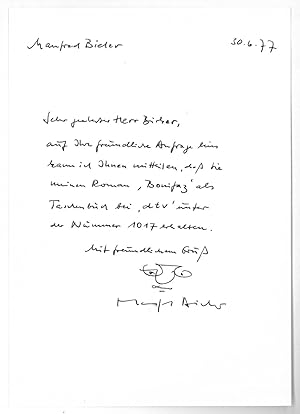 Manfred Bieler 30.6.77
Sehr geehrter Herr
auf Ihre freundliche Anfrage hin
kann ich Ihnen mitteilen, daß Sie
meinen Roman ‚Bonifaz' als
Taschenbuch bei ‚dtv' unter
der Nummer 1017 erhalten.
Mit freundlichem Gruß
Manfred Bieler